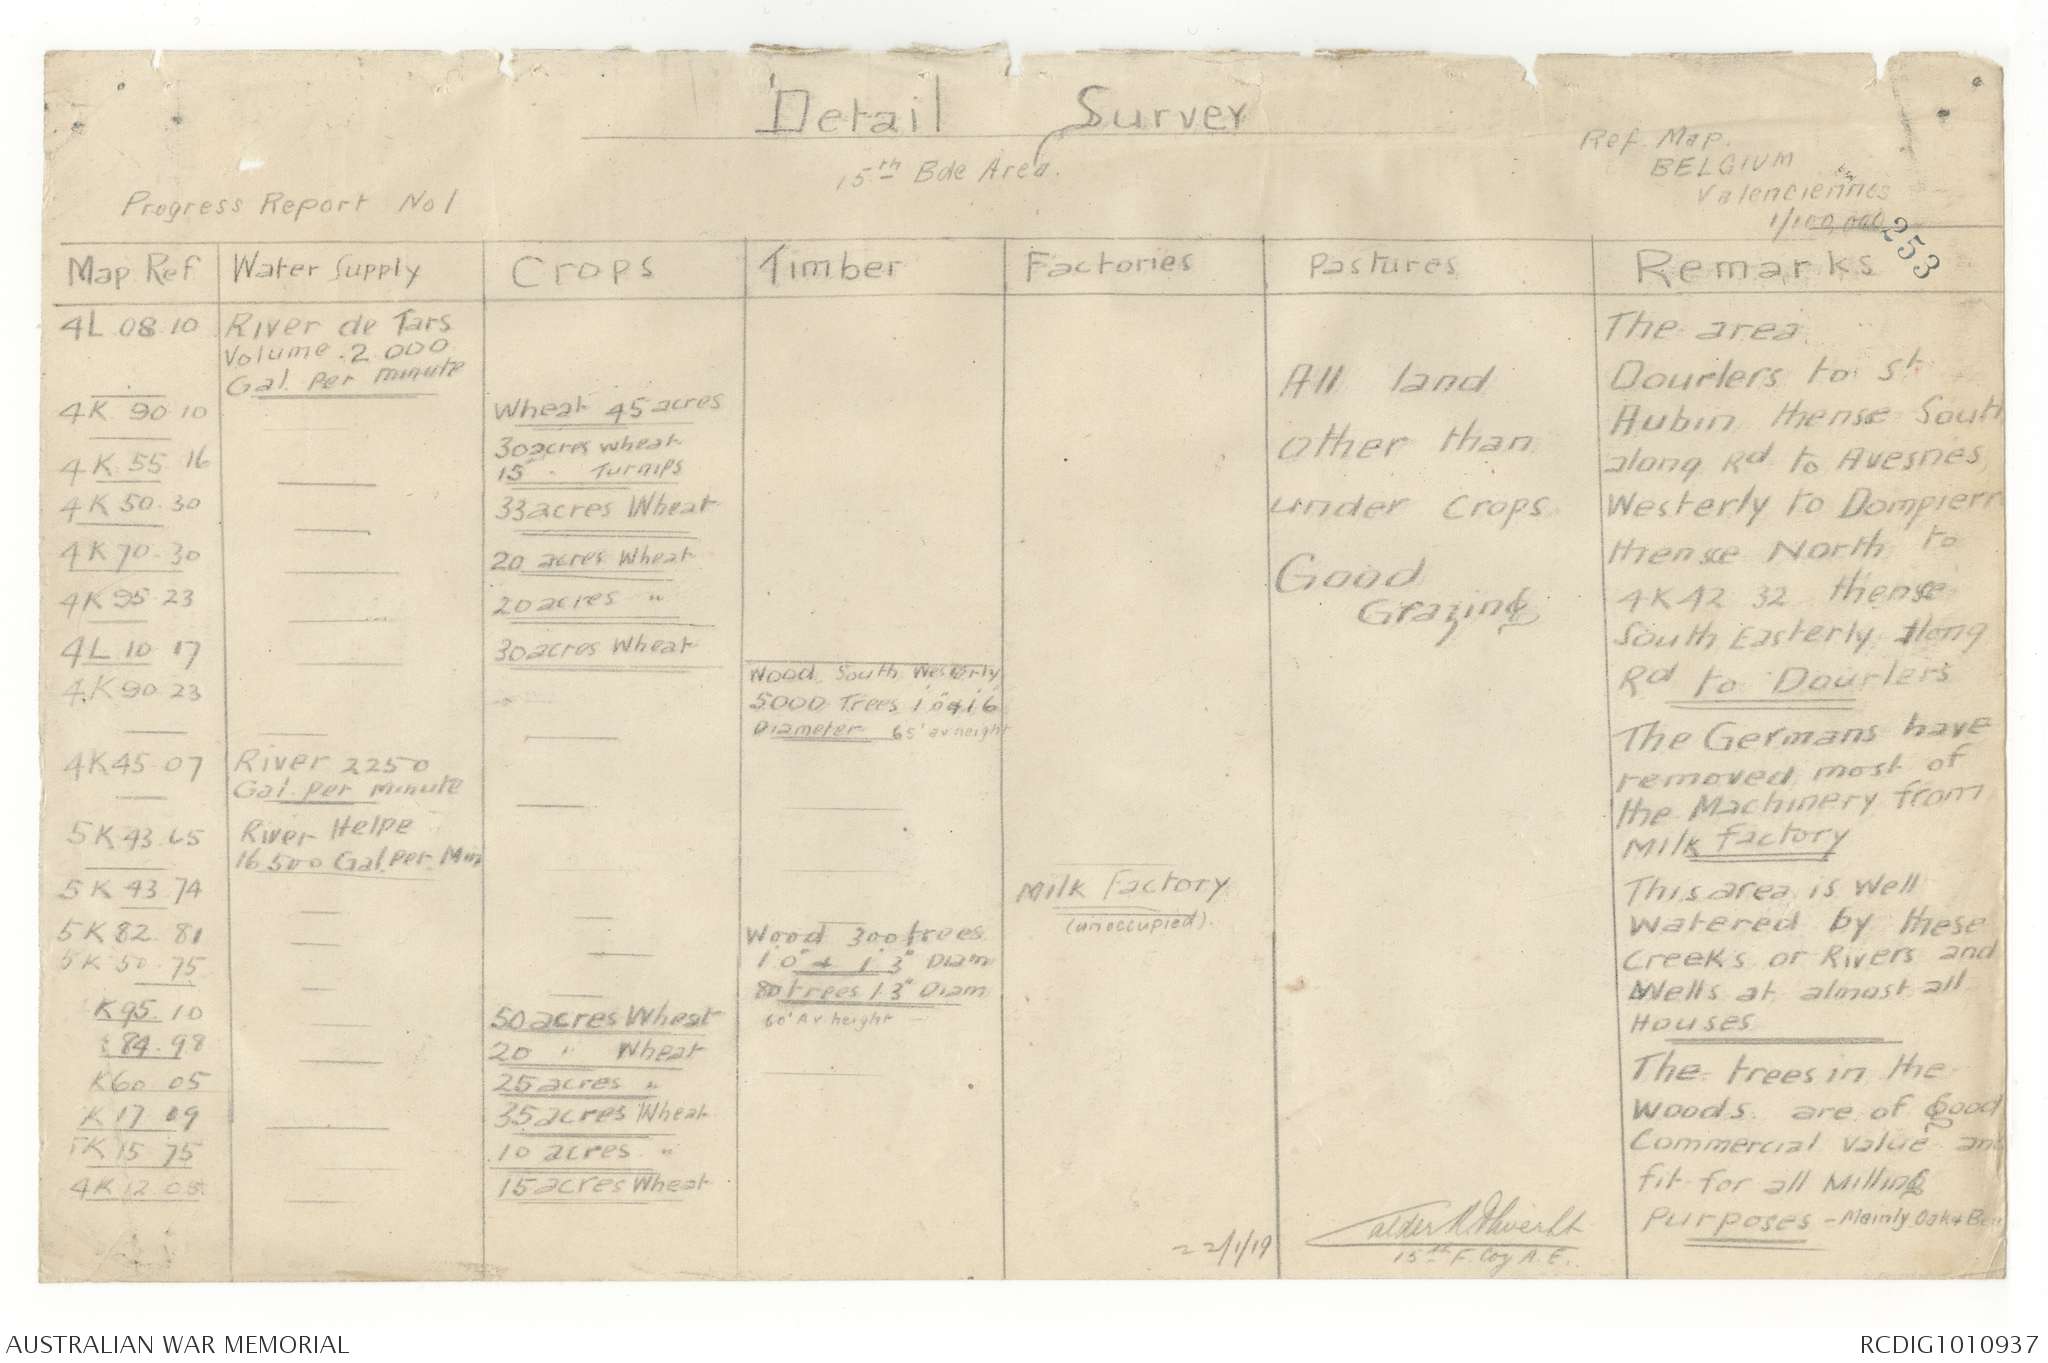 Detail Survey
15th Bde Area.
Ref. Map.
BELGIUM
Valenciennes
1/100,000
253
Progress Report No 1
Map Ref Water Supply Crops Timber Factories Pastures Remarks
4L 08 10 River de Tars
Volume 2000
Gal. per minute
4K 90 10 Wheat 45 acres
4K 55 16 30 acres wheat
15 " Turnips
4K 50.30 33 acres Wheat
4K 70.30 20 acres Wheat
4K 95 23 20 acres "
4L 10 17 30 acres Wheat
4K 90 23 Wood South Westerly
5000 Trees 1'0" & 1'6"
Diameter 65' av height
4K 45 07 River 2250
Gal. per Minute
5K 43 65 River Helpe
16500 Gal. per. Min
5K 43 74 Milk Factory
(unoccupied).
5K 82. 81 Wood 300 trees
1'0" + 1'3" Diam
5K 50.75 80 trees 1'3" Diam
60' Av height
K 95. 10 50 acres Wheat
84.98 20 " Wheat
K 60 05 25 acres "
K 17 09 35 acres Wheat
K 15 75 10 acres "
4K 12 05 15 acres Wheat
All land
other than
under crops
Good
Grazing
The area
Dourlers to St
Aubin thense South
along Rd to Avesnes
Westerly to Dompierr
thense North to
4K 42 32 thense
South Easterly along
Rd to Dourlers
The Germans have
removed most of
the Machinery from
Milk factory
This area is well
watered by these
Creeks or Rivers and
Wells at almost all
Houses
The trees in the
woods are of Good
Commercial value and
fit for all Milling
purposes - Mainly Oak &
22/1/19
15th F. Coy A.E.
AUSTRALIAN WAR MEMORIAL RCDIG1010937